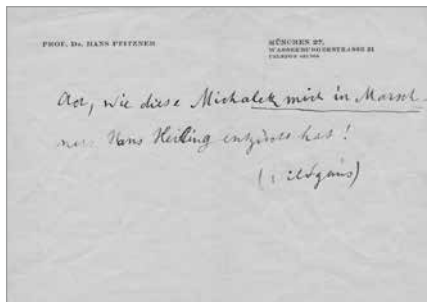 PROF. DR. HANS PFITZNER
MÜNCHEN 27,
WASSERBURGERSTRASSE 21
Ach, wie diese Michalek mich in Marsch-
ners Hans Heiling entzückt hat!
(Wildgans)